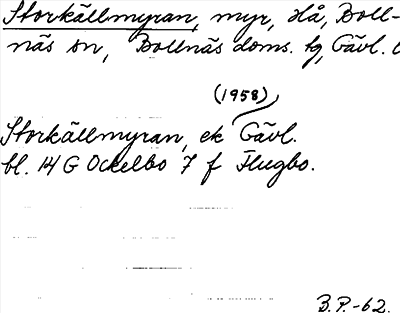 Storkällmyran, myr, Hå, Boll-
näs sn, Bollnäs doms. hg, Gävl. l
(1958)
Storkällmyran, ek Gävl.
bl. 14 G Ockelbo 7 f Flugbo.
B.P.-62.